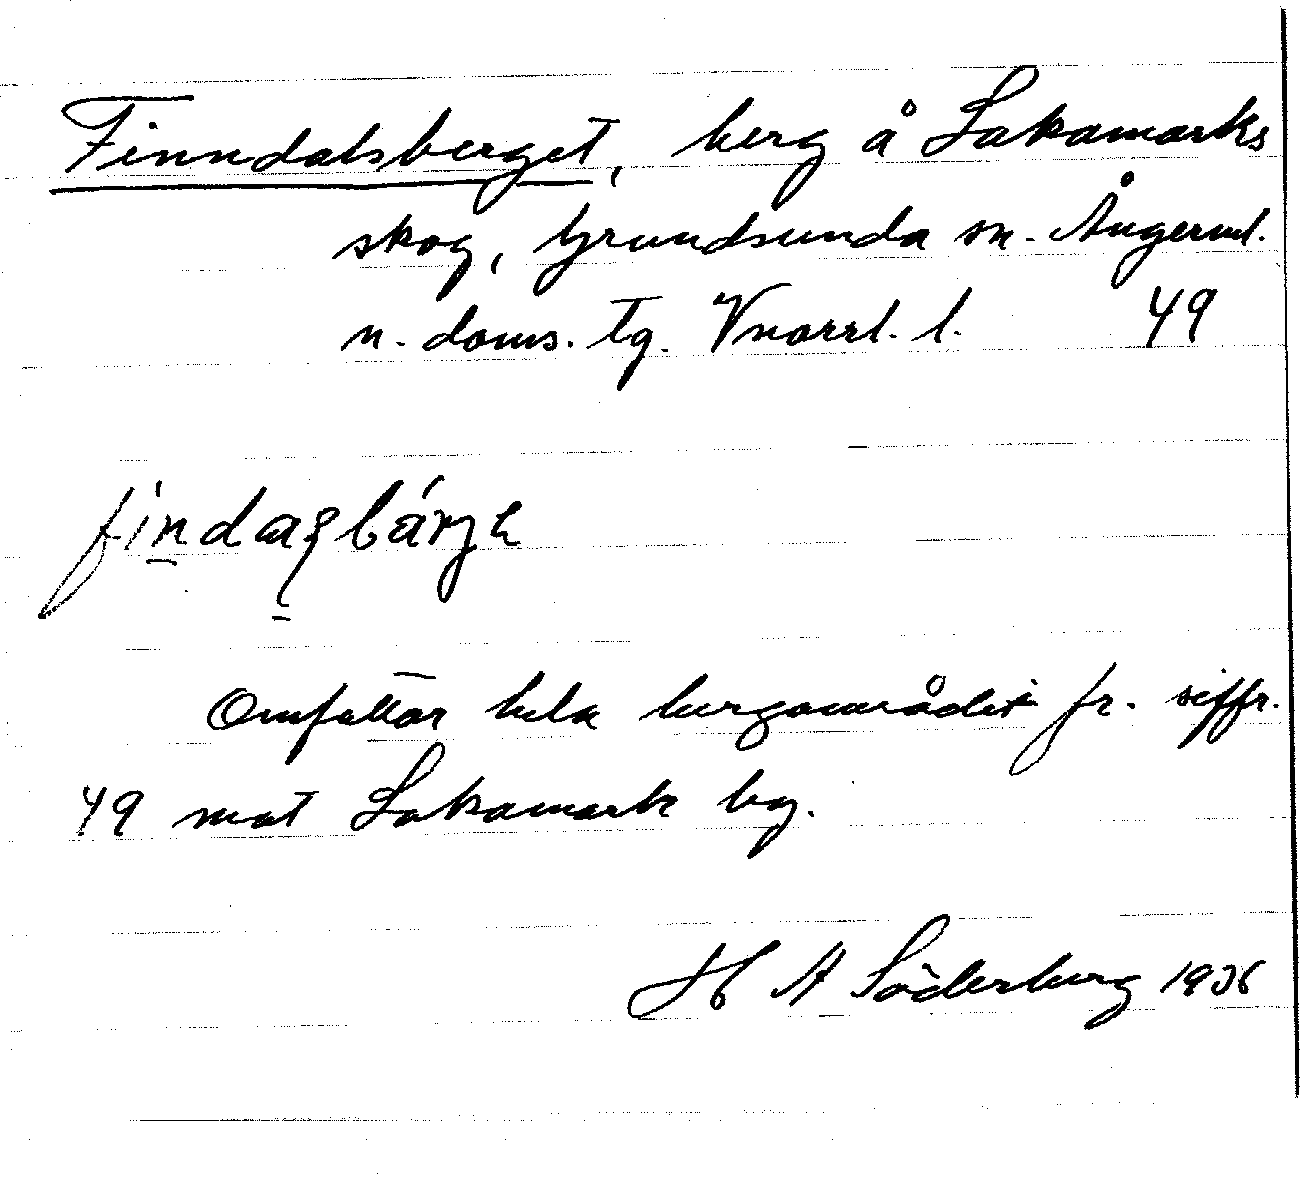 Finndalsberget, berg å Sakamarks
skog, Grundsunda sn. Ångerml.
n. doms. tg. Vnorrl. l. 49
Omfattar hela bergområdet fr. siffr.
49 mot Sakamark by.
H A Söderberg 1936